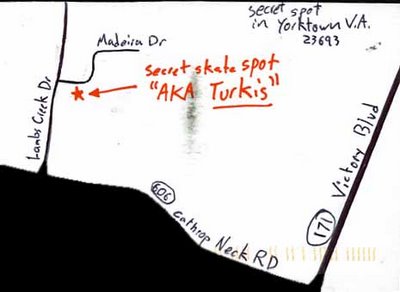 secret spot
in Yorktown V.A.
23693
Madeira Dr
secret skate spot
"AKA Turkis"
Lambs Creek Dr
Victory Blvd
606
Cathrop Neck RD
171